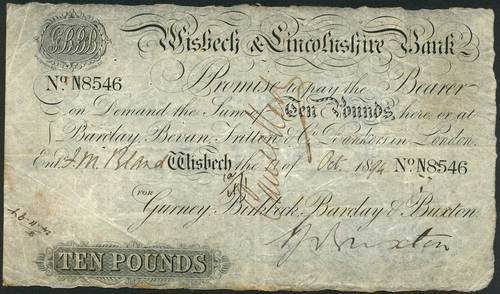 Wisbech & Lincolnshire Bank
No. N8546
I Promise to pay the Bearer
on Demand the Sum of Ten Pounds here, or at
Barclay, Bevan, Tritton & Co. Bankers in London.
Entd. Wisbech the of Oct. 1894 No. N8546
FOR
Gurney, Birkbeck, Barclay & Buxton.
Buxton
TEN POUNDS